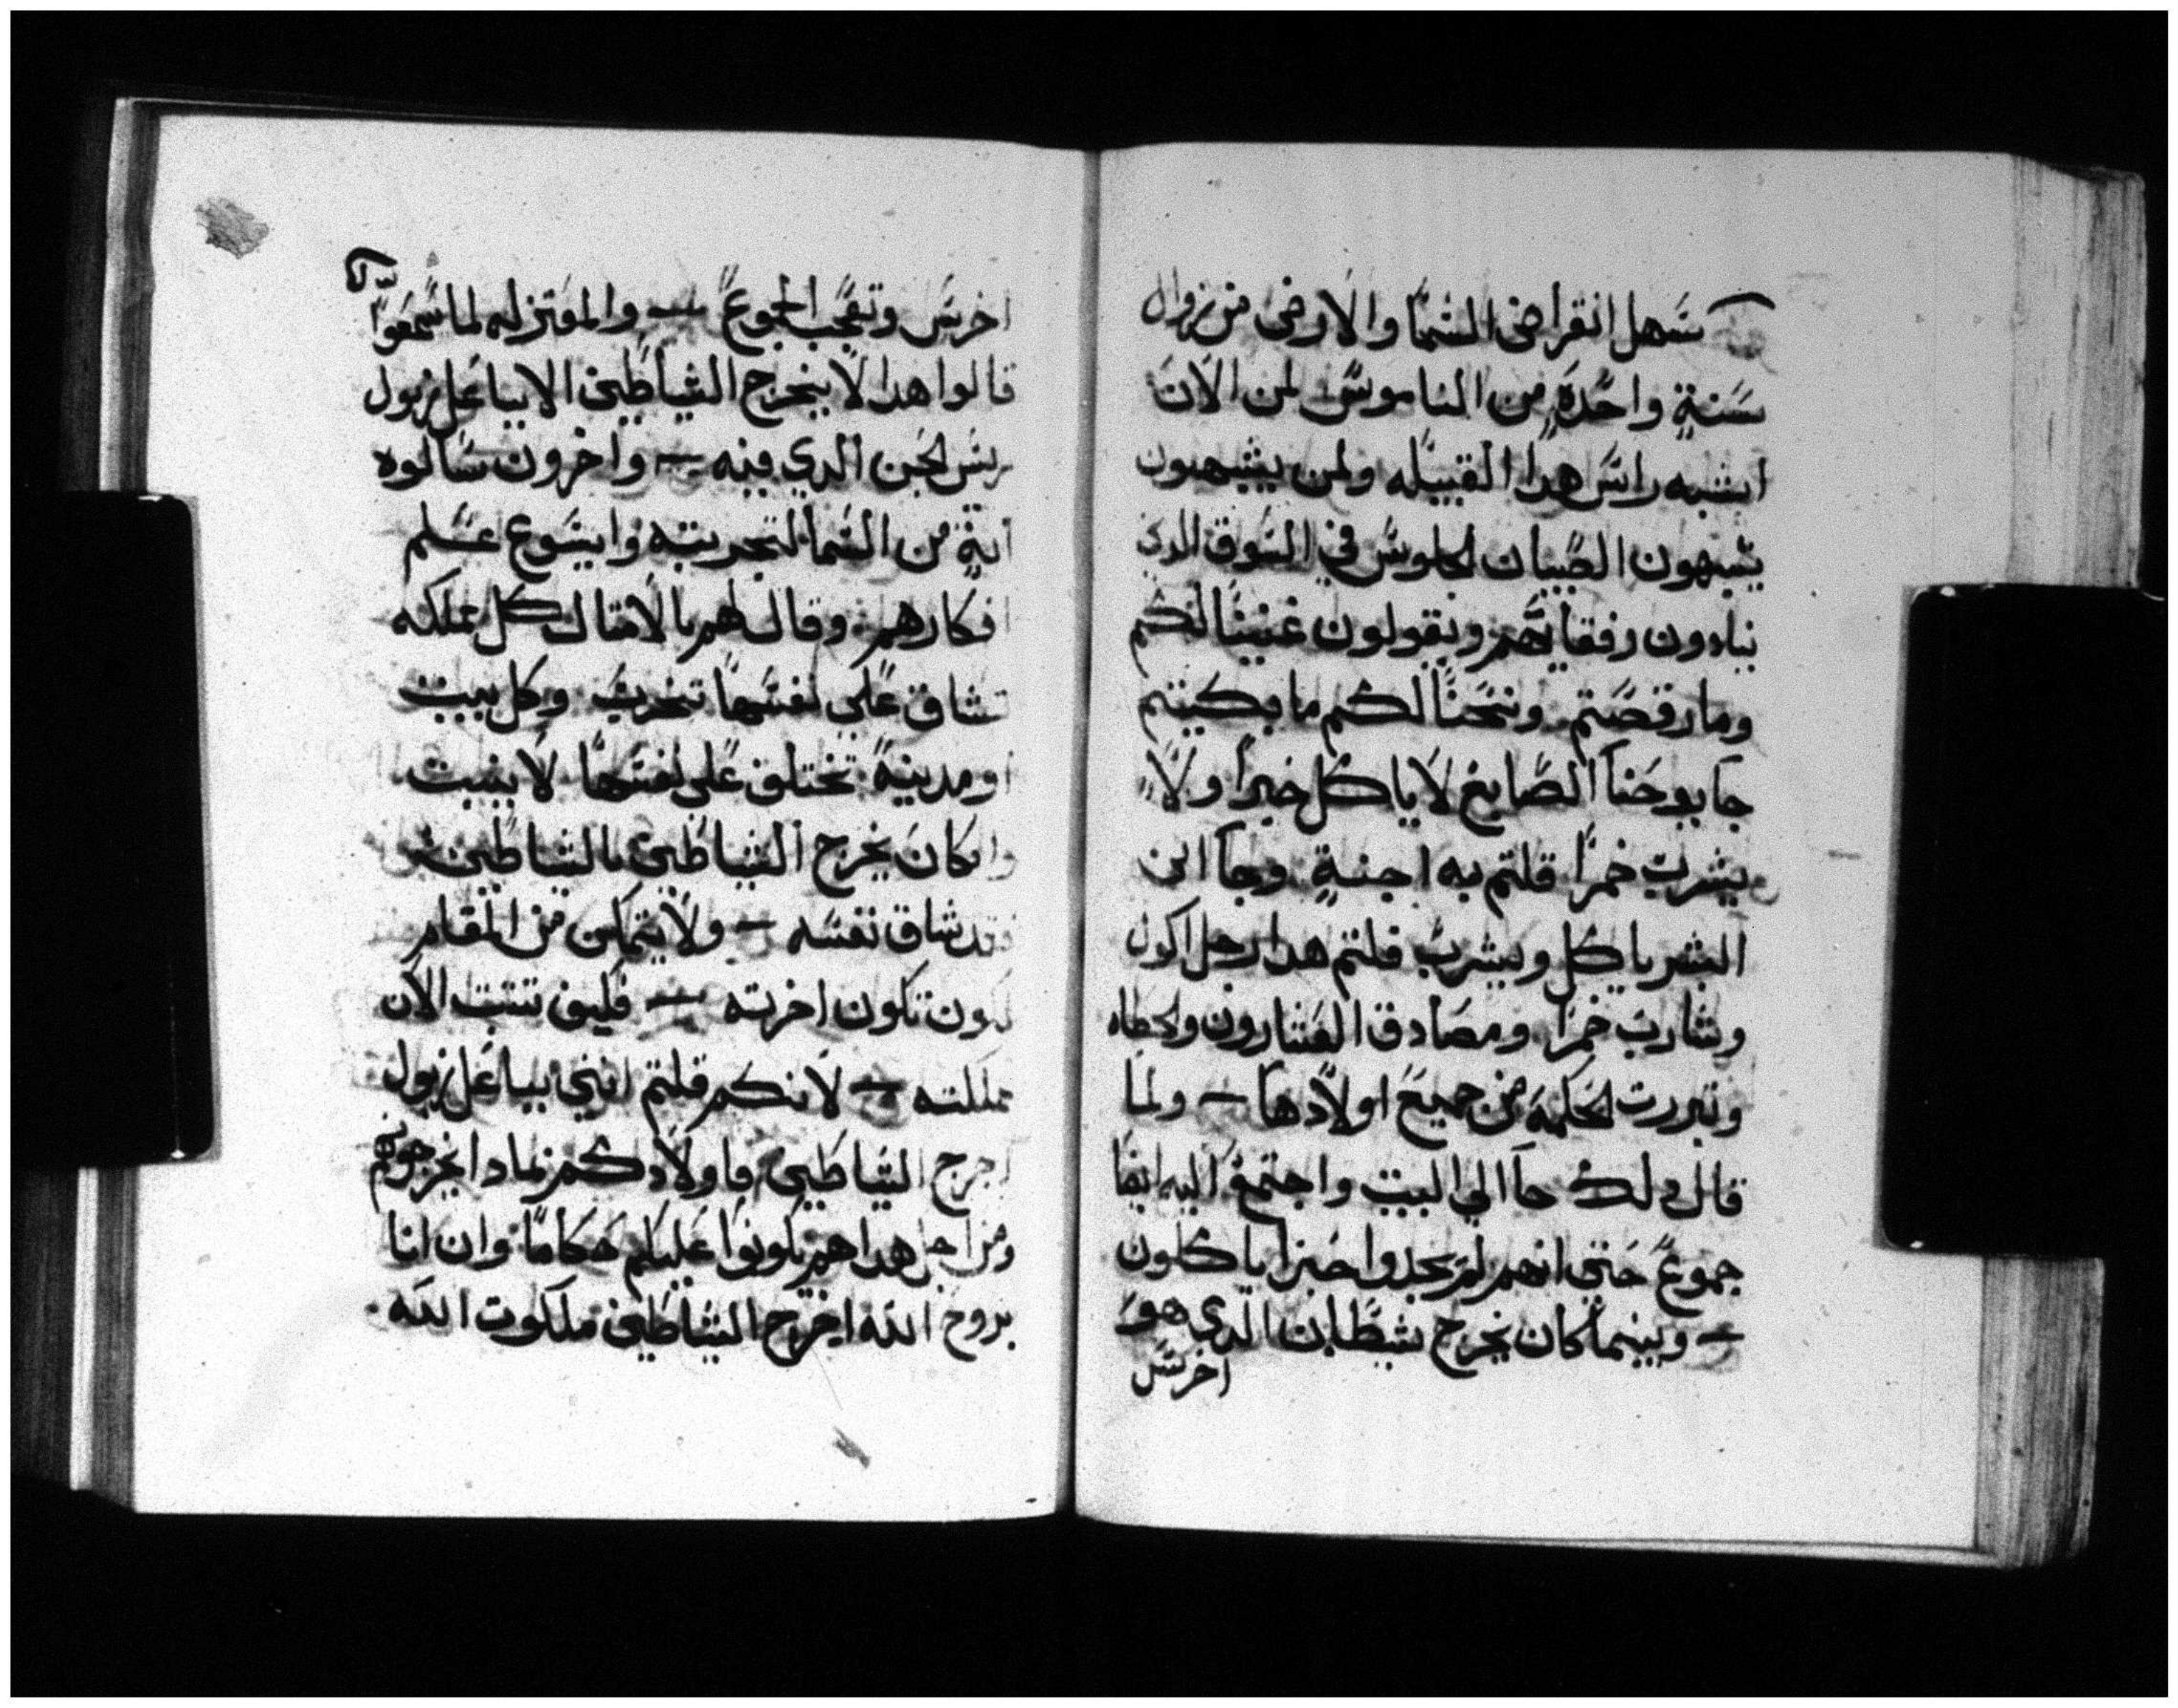 سهل انقراض السما والارض من زوال
سنة واحدة من الناموس لمن الان
اشبه راس هدا القبيله ولمن يشبهون
يشبهون الصبيان الجلوس في السوق الدي
ينادون رفقايهم ويقولون غنينا لكم
وما رقصتم ونحنا لكم ما بكيتم
جا يوحنا الصايغ لا ياكل خبزا ولا
يشرب خمرا قلتم به اجنة وجا ابن
البشر ياكل ويشرب قلتم هدا رجل اكول
وشارب خمرا ومصادق العشارون والخطاه
وتبررت الحكمة من جميع اولادها ولما
قال دلك جا الي البيت واجتمع اليه ايضا
جموع حتي انهم لم يجدوا خبزا ياكلون
وبينما كان يخرج شيطان الدي هو
اخرس
اخرس وتعجب الجموع والمعتزله لما سمعوا
قالوا هدا لا يخرج الشياطين الا بباعل زبول
ريس الجن الدي فيه واخرون سالوه
اية من السما لتجربته وايسوع علم
افكارهم وقال لهم بالامثال كل مملكه
تشاق علي نفسها تخرب وكل بيت
او مدينة تختلق علي نفسها لا يثبت
وان كان يخرج الشياطين بالشياطين
فقد شاق نفسه ولا يتمكن من المقام
لكون تكون اخرته فكيف تثبت الان
مملكته لانكم قلتم انني بباعل زبول
اخرج الشياطين فاولادكم بمادا يخرجونهم
ومن اجل هدا هم يكونوا عليكم حكاما وان انا
بروح الله اخرج الشياطين ملكوت الله